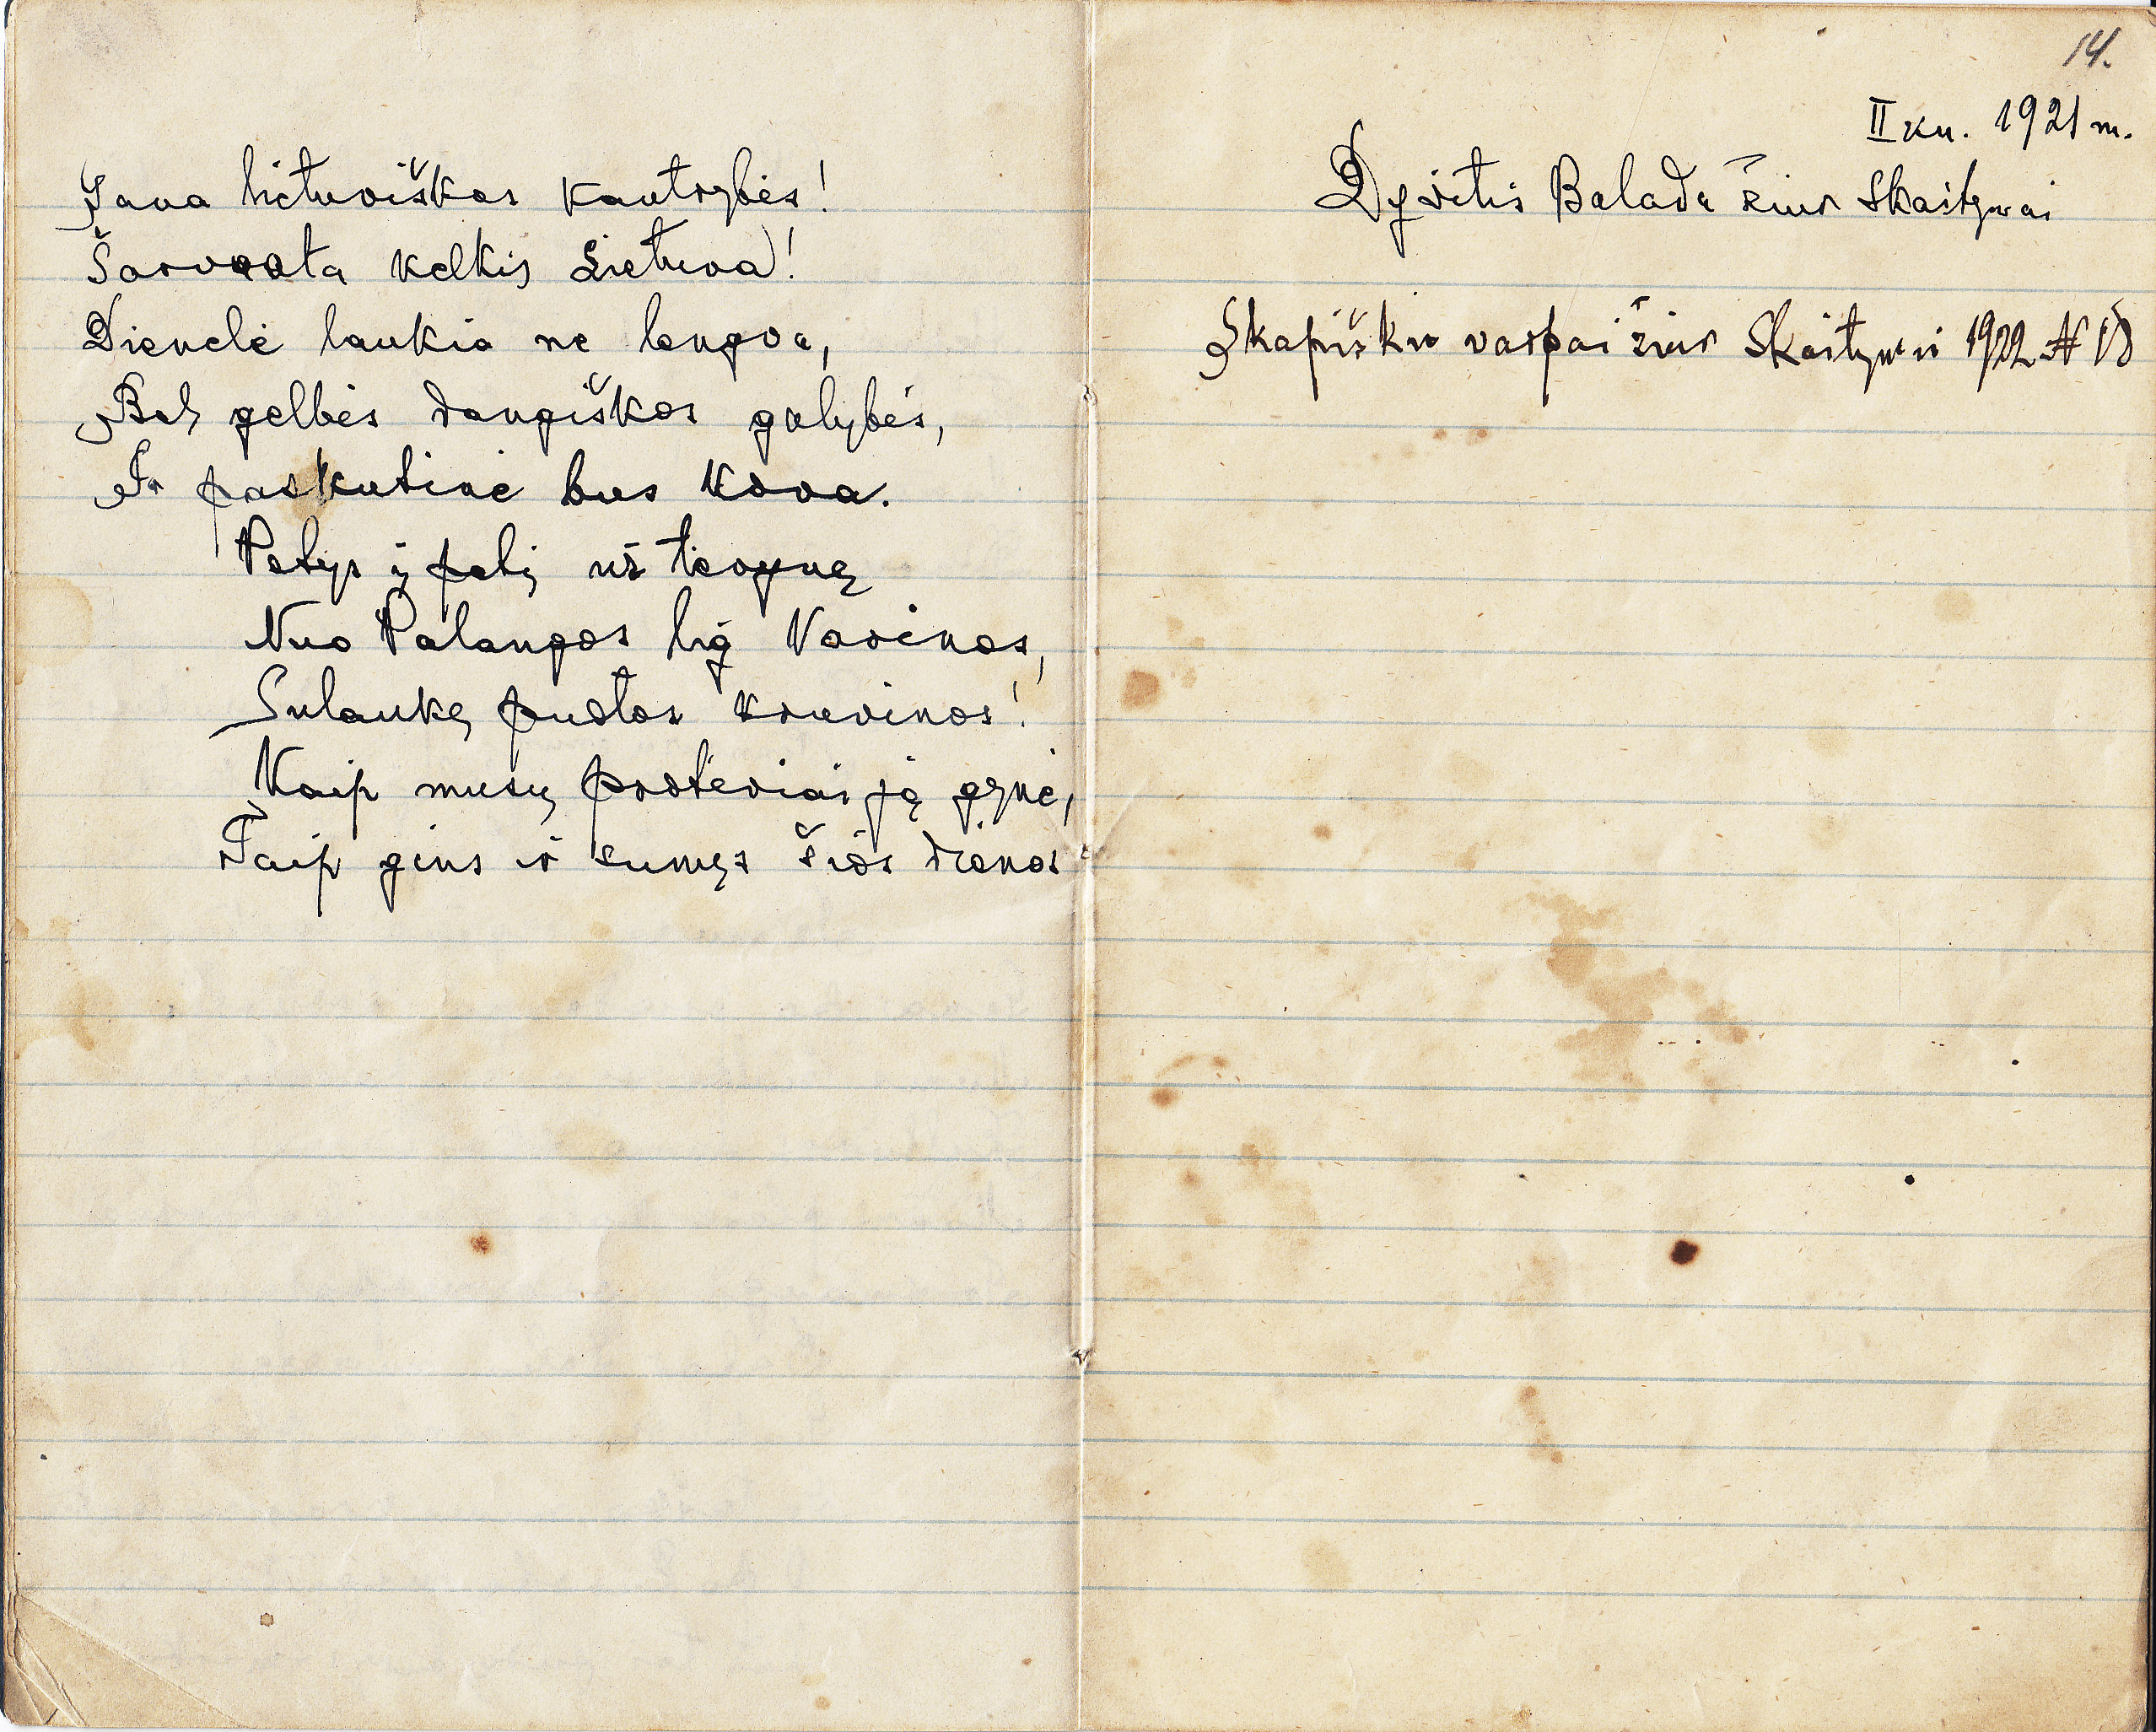 Gana lietuviškos kantrybės!
Šarvuota kelkis Lietuva!
Dienelė laukia ne lengva,
Bet gelbės dangiškos galybės,
Ir paskutinė bus kova.
Petys į petį už tėvynę
Nuo Palangos lig Varėnos,
Sulaukę puotos kruvinos!
Kaip musų protėviai ją gynė,
Taip gins ir sunųs šios dienos
14.
II kn. 1921 m.
Dgvitis Balada žiur Skaitymai
Skapiškio varpai žiur Skaitymai 1922 № 18